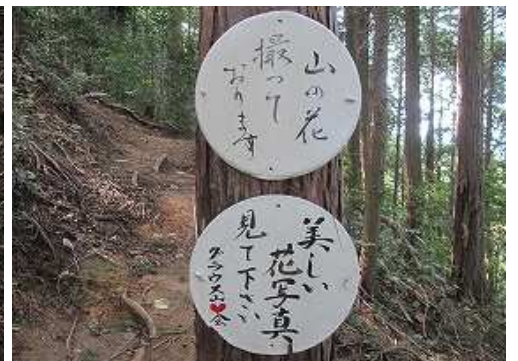 山の花
撮って
おります
美しい
花写真
見て下さい
グラウス山❤会